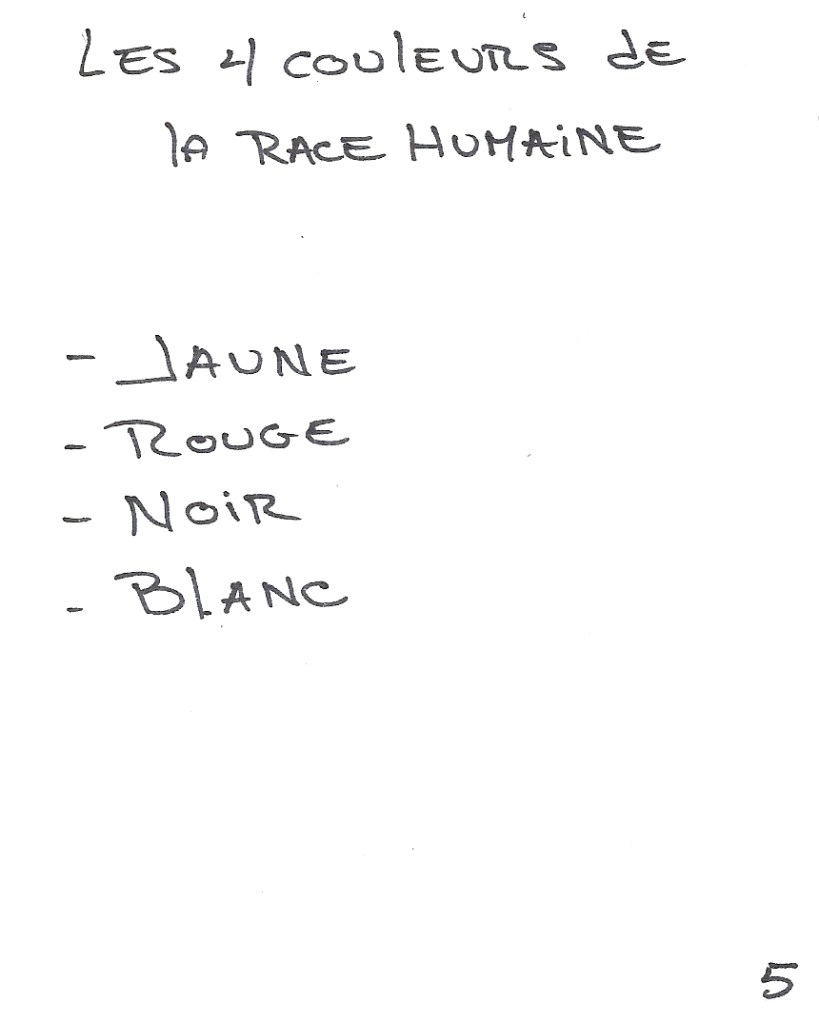 LES 4 COULEURS dE
lA RACE HUMAiNE
- JAUNE
- ROUGE
- NOiR
- BLANC
5